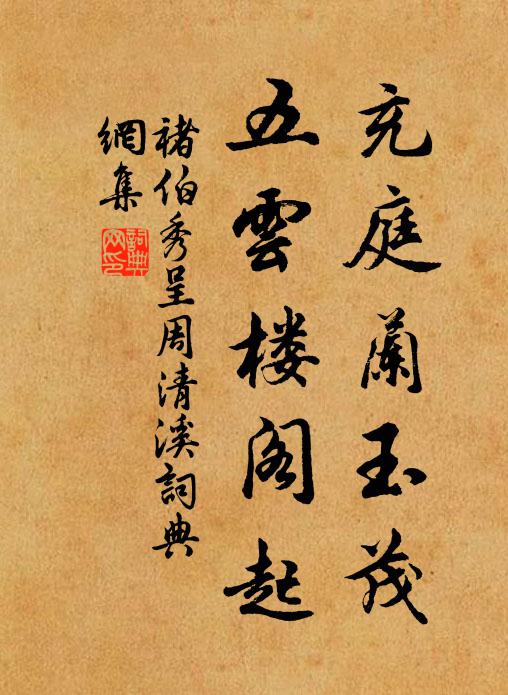 充庭蘭玉茂
五雲楼阁起
褚伯秀呈周清溪詞典
網集
詞典網印